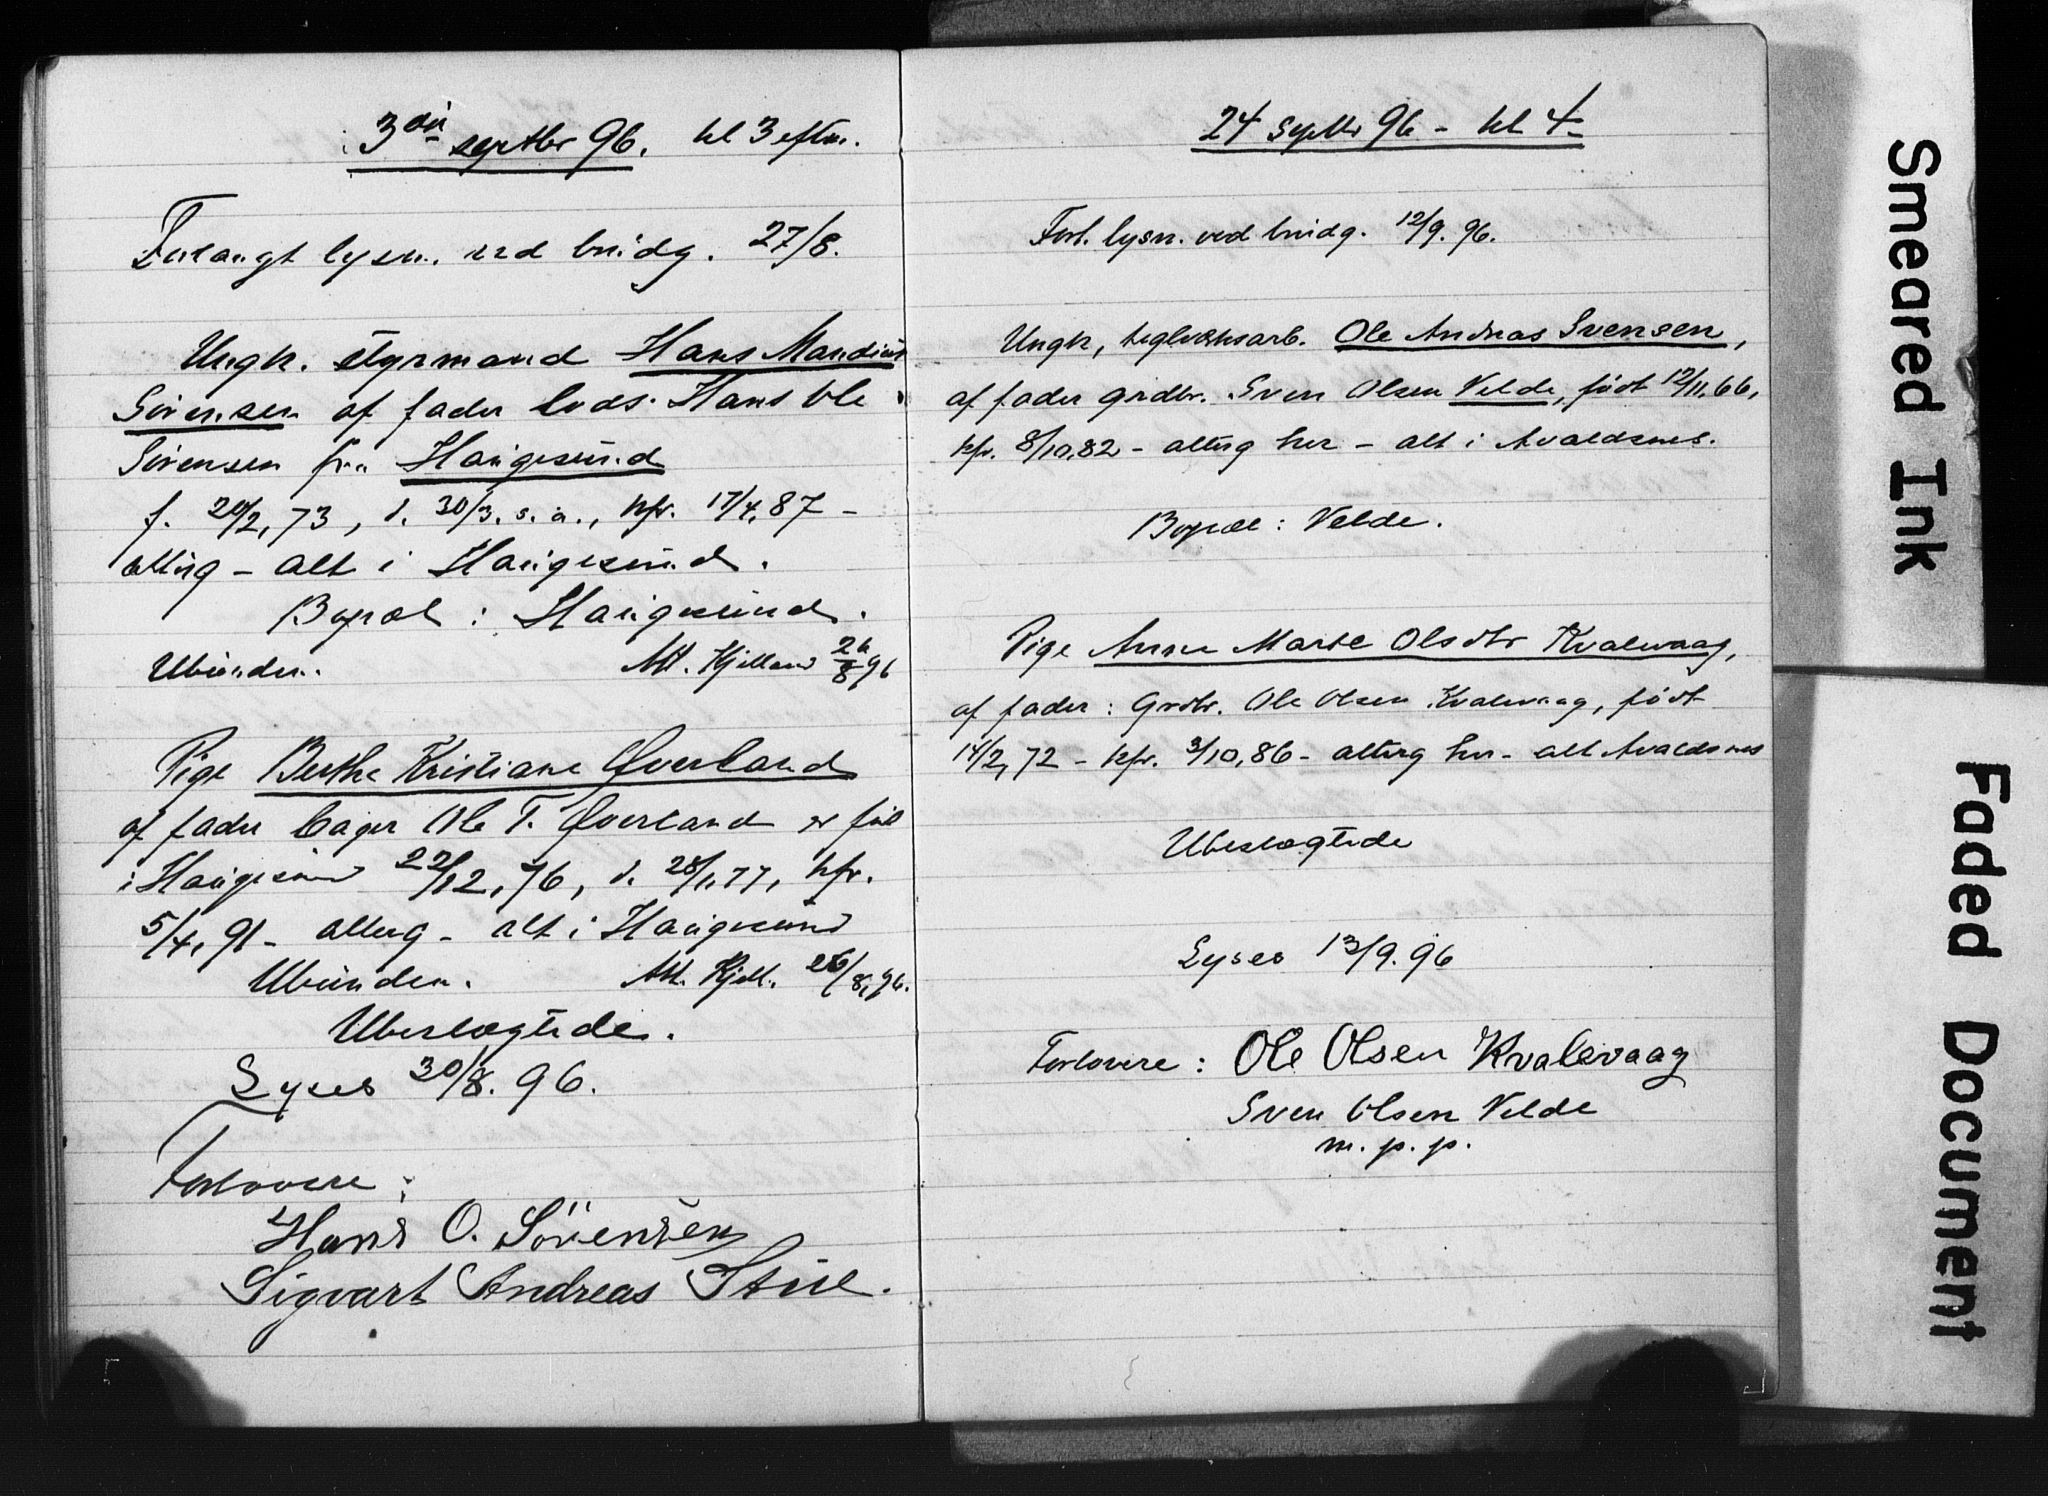 3die septbr 96. kl 3 eftm.
Forlangt lysn. ved brudg. 27/8.
Ungk. styrmand Hans Mandius
Sørensen af fader lods Hans Ole
Sørensen fra Haugesund
f. 20/2, 73, d. 30/3. s. a., kfr. 17/4, 87 –
altrg – alt i Haugesund.
Bopæl : Haugesund.
Ubunden. Att. Kjelland 26/8 96
Pige Berthe Kristiane Qverland
af fader bager Ole T. Qverland er født
i Haugesund 22/12, 76, d. 28/1, 77, kfr.
5/4, 91 – altrg – alt i Haugesund
Ubunden. Att. Kjell. 26/8, 96.
Ubeslægtede.
Lyses 30/8. 96.
Forlovere :
Hans O. Sörensen
Sigvart Andreas
24 Septbr 96 – kl 4
Forl. lysn. ved brudg. 12/9. 96.
Ungk, teglverksarb. Ole Andreas Svensen,
af fader grdbr. Sven Olsen Velde, født 12/11, 66,
kfr. 8/10, 82 – altrg her – alt i Avaldsnes.
Bopæl : Velde.
Pige Anne Marte Olsdtr Kvalevaag,
af fader : Grdbr. Ole Olsen Kvalevaag, født
14/2, 72 – kfr. 3/10, 86 – altrg her – alt Avaldsnes
Ubeslægtede
Lyses 13/9. 96
Forlovere : Ole Olsen Kvalevaag
Sven Olsen Velde
m. p. p.
Smeared Ink
Faded Document